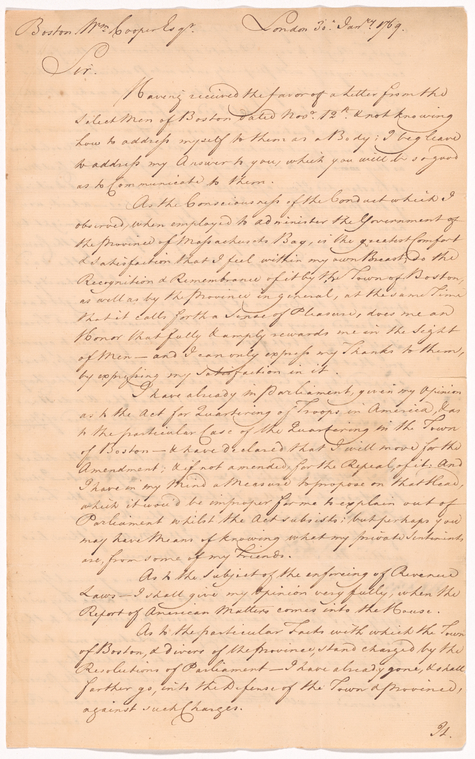 Boston Wm. Cooper Esqr. London 30. Jany. 1769.
Sir.
Having received the favor of a Letter from the
Select Men of Boston dated Novr. 12th. & not knowing
how to address myself to them as a Body; I beg leave
to address my Answer to you, which you will be so good
as to Communicate to them.
As the Consciousness of the Conduct which I
observed, when employed to administer the Government of
the Province of Massachusets Bay, is the greatest Comfort
& Satisfaction that I feel within my own Breast, So the
Recognition & Remembrance of it by the Town of Boston,
as well as by the Province in general, at the same Time
that it calls forth a Sense of Pleasure, does me an
Honor that fully & amply rewards me in the Sight
of Men — and I can only express my Thanks to them,
by expressing my Satisfaction in it.
I have already in Parliament, given my Opinion
as to the Act for Quartering of Troops in America, & as
to the particular Case of the Quartering in the Town
of Boston — & have declared that I will move for the
Amendment; & if not amended, for the Repeal of it: And
I have in my Mind a Measure to propose on that Head,
which it wou'd be improper for me to explain out of
Parliament whilst the Act subsists: but perhaps you
may have Means of knowing what my private Sentiments
are, from some of my Friends.
As to the Subject of the enforcing of Revenue
Laws — I shall give my Opinion very fully, when the
Report of American Matters comes into the House.
As to the particular Facts with which the Town
of Boston, & divers of the Province, stand charged by the
Resolutions of Parliament — I have already gone, & shall
farther go, into the Defense of the Town & Province,
against such Charges.